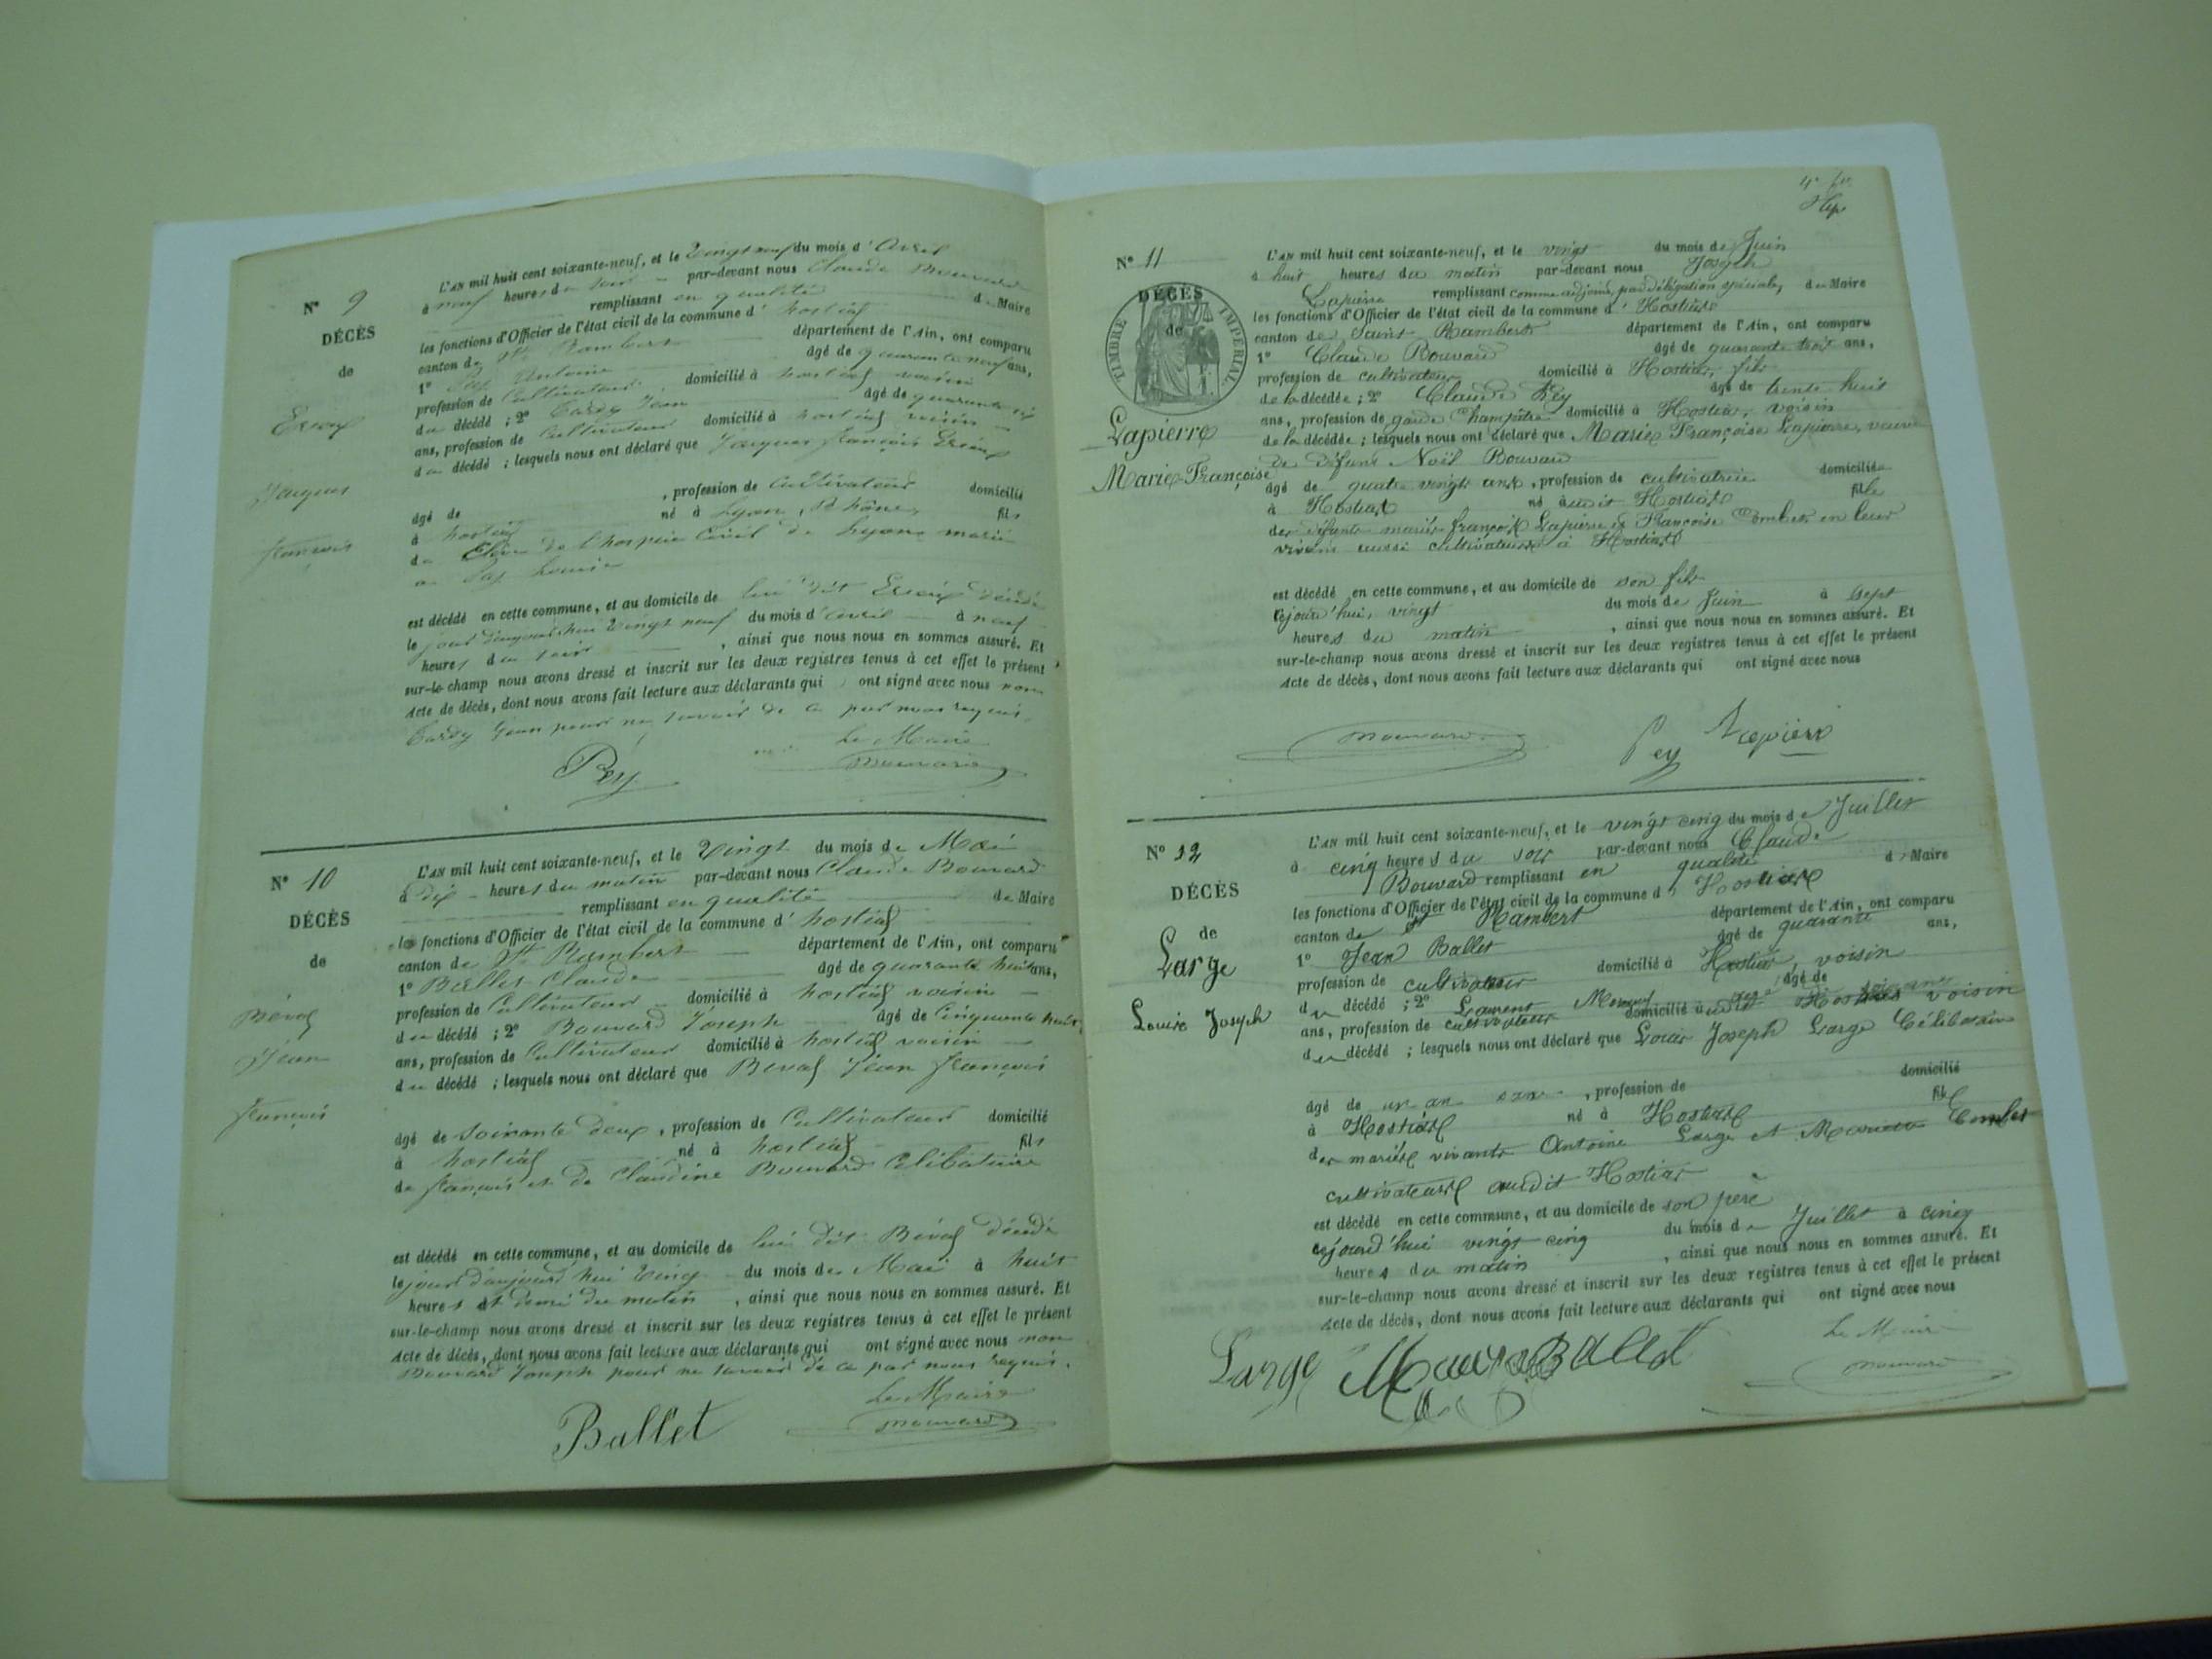 N° 9
DÉCÈS
de
Jacques
françois
L'AN mil huit cent soixante-neuf, et le Vingt neuf du mois d'Avril
à neuf heures du soir par-devant nous Claude Bouvard
remplissant en qualité de Maire
les fonctions d'Officier de l'état civil de la commune d'hostias
canton de St Rambert département de l'Ain, ont comparu
1° Antoine âgé de quarante neuf ans,
profession de Cultivateur domicilié à hostias voisin
du décédé ; 2° Tardy Jean âgé de quarante
ans, profession de Cultivateur domicilié à hostias voisin
du décédé ; lesquels nous ont déclaré que Jacques françois
âgé de , profession de Cultivateur domicilié
à hostias né à Lyon, Rhône, fils
de Elève de l'hospice Civil de Lyon marié
a Louise
est décédé en cette commune, et au domicile de lui dit décédé
le jour d'aujourd'hui Vingt neuf du mois d'avril à neuf
heures du soir , ainsi que nous nous en sommes assuré. Et
sur-le-champ nous avons dressé et inscrit sur les deux registres tenus à cet effet le présent
Acte de décès, dont nous avons fait lecture aux déclarants qui ont signé avec nous non
Tardy Jean pour ne savoir de ce par nous requis.
Le Maire
Bouvard
N° 10
DÉCÈS
de
Jean
françois
L'AN mil huit cent soixante-neuf, et le Vingt du mois de Mai
à dix heures du matin par-devant nous Claude Bouvard
remplissant en qualité de Maire
les fonctions d'Officier de l'état civil de la commune d'hostias
canton de St Rambert département de l'Ain, ont comparu
1° Ballet Claude âgé de quarante huit ans,
profession de Cultivateur domicilié à hostias voisin
du décédé ; 2° Bouvard Joseph âgé de Cinquante huit
ans, profession de Cultivateur domicilié à hostias voisin
du décédé ; lesquels nous ont déclaré que Jean françois
âgé de soixante deux , profession de Cultivateur domicilié
à hostias né à hostias fils
de françois et de Claudine Bouvard Célibataire
est décédé en cette commune, et au domicile de lui dit décédé
le jour d'aujourd'hui Vingt du mois de Mai à huit
heures et demi du matin , ainsi que nous nous en sommes assuré. Et
sur-le-champ nous avons dressé et inscrit sur les deux registres tenus à cet effet le présent
Acte de décès, dont nous avons fait lecture aux déclarants qui ont signé avec nous non
Bouvard Joseph pour ne savoir de ce par nous requis.
Le Maire
Ballet Bouvard
N° 11
DÉCÈS
de
TIMBRE IMPÉRIAL
Lapierre
Marie-Françoise
L'AN mil huit cent soixante-neuf, et le vingt du mois de Juin
à huit heures du matin par-devant nous Joseph
Lapierre remplissant comme adjoint, par délégation spéciale, du Maire
les fonctions d'Officier de l'état civil de la commune d'Hostias
canton de Saint Rambert département de l'Ain, ont comparu
1° Claude Bouvard âgé de quarante trois ans,
profession de cultivateur domicilié à Hostias, fils
de la décédée ; 2° Claude Pey âgé de trente huit
ans, profession de garde Champêtre domicilié à Hostias, voisin
de la décédée ; lesquels nous ont déclaré que Marie Françoise Lapierre, veuve
de défunt Noël Bouvard
âgé de quatre vingts ans, profession de cultivatrice domiciliée
à Hostias né audit Hostias fille
des défunts mariés françois Lapierre et Françoise Combet en leur
vivant aussi cultivateurs à Hostias
est décédé en cette commune, et au domicile de son fils
cejourd'hui, vingt du mois de Juin à sept
heures du matin , ainsi que nous nous en sommes assuré. Et
sur-le-champ nous avons dressé et inscrit sur les deux registres tenus à cet effet le présent
Acte de décès, dont nous avons fait lecture aux déclarants qui ont signé avec nous
Bouvard Pey Lapierre
N° 12
DÉCÈS
de
Large
Louis Joseph
L'AN mil huit cent soixante-neuf, et le vingt cinq du mois de Juillet
à cinq heures du soir par-devant nous Claude
Bouvard remplissant en qualité de Maire
les fonctions d'Officier de l'état civil de la commune d'Hostias
canton de St Rambert département de l'Ain, ont comparu
1° Jean Ballet âgé de quarante ans,
profession de cultivateur domicilié à Hostias, voisin
du décédé ; 2° Laurent âgé de
ans, profession de cultivateur domicilié audit Hostias voisin
du décédé ; lesquels nous ont déclaré que Louis Joseph Large Célibataire
âgé de un an , profession de domicilié
à Hostias né à Hostias fils
des mariés vivants Antoine Large et Combet
cultivateurs audit Hostias
est décédé en cette commune, et au domicile de son père
cejourd'hui vingt cinq du mois de Juillet à cinq
heures du matin , ainsi que nous nous en sommes assuré. Et
sur-le-champ nous avons dressé et inscrit sur les deux registres tenus à cet effet le présent
Acte de décès, dont nous avons fait lecture aux déclarants qui ont signé avec nous
Le Maire
Large Ballet Bouvard